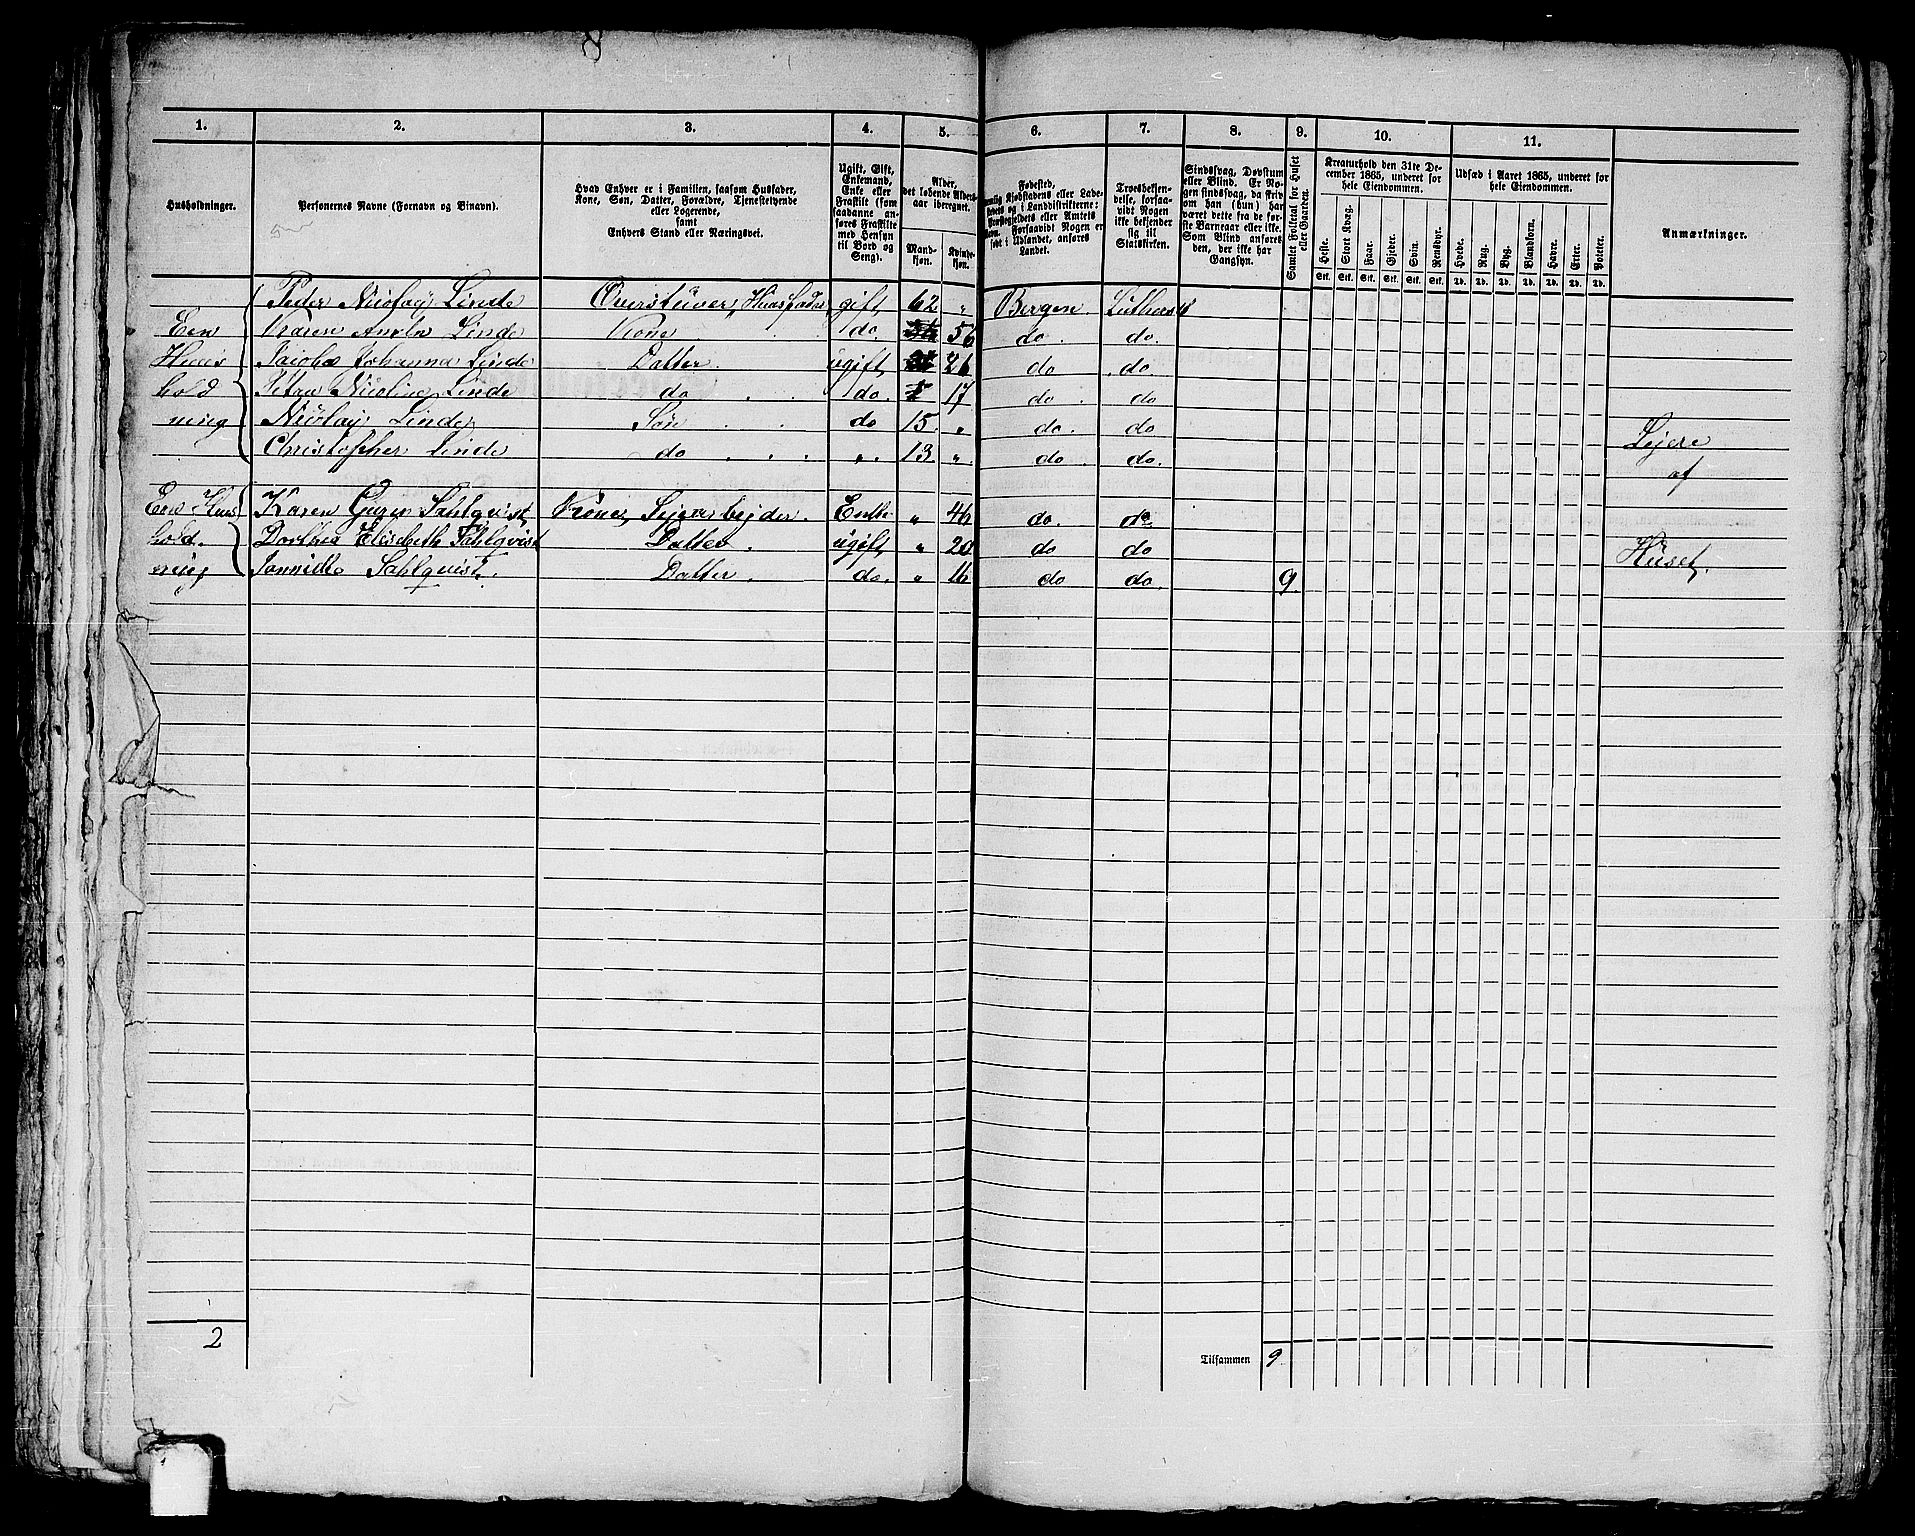 8
1. 2. 3. 4. 5. 6. 7. 8. 9. 10. 11.
Husholdninger.
Personernes Navne (Fornavn og Binavn).
Hvad Enhver er i Familien, saasom Husfader, Kone, Søn, Datter, Forældre, Tjenestetyende eller Logerende, samt Enhvers Stand eller Næringsvei.
Ugift, Gift, Enkemand, Enke eller Fraskilt (som saadanne anføres Fraskilte med Hensyn til Bord og Seng).
Alder, det løbende Aldersaar iberegnet.
Mandkjøn. Kvindekjøn.
Fødested, nemlig Kjøbstadens eller Ladestedets og i Landdistrikterne: Præstegjeldets eller Amtets Navn. Forsaavidt Nogen er født i Udlandet, anføres Landet.
Troesbekjendelse, forsaavidt Nogen ikke bekjender sig til Statskirken.
Sindssvag, Døvstum eller Blind. Er Nogen sindssvag, da skrives om han (hun) har været dette fra de første Barneaar eller ikke. Som Blind anføres den, der ikke har Gangsyn.
Samlet Folketal for Huset eller Gaarden.
Kreaturhold den 31te December 1865, underet for hele Eiendommen.
Heste. Stort Kvæg. Faar. Gjeder. Svin. Rensdyr.
Stk. Stk. Stk. Stk. Stk. Stk.
Udsæd i Aaret 1865, underet for hele Eiendommen.
Hvede. Rug. Byg. Blandkorn. Havre. Erter. Poteter.
Td. Td. Td. Td. Td. Td. Td.
Anmærkninger.
Peder Nicolay Linde Husfader, gift, 62 " Bergen. Luthersk
Een Karen Linde Kone do. 56 do. do.
Huus Jacoba Johanna Linde Datter. ugift, 26 do do
hold Petra Nicoline Linde do. do. 17 do. do
ning Nicolay Linde Søn do 15. " do. do
Christopher Linde do " 13 " do. do.
Leiere
af
Huset.
Een Huus Karen Sahlqvist Enke " 46 do. do
hold. Dorthea Elisabeth Sahlqvist Datter ugift " 20 do do
ning Sahlqvist. Datter. do. " 16 do do. 9.
2
Tilsammen 9.